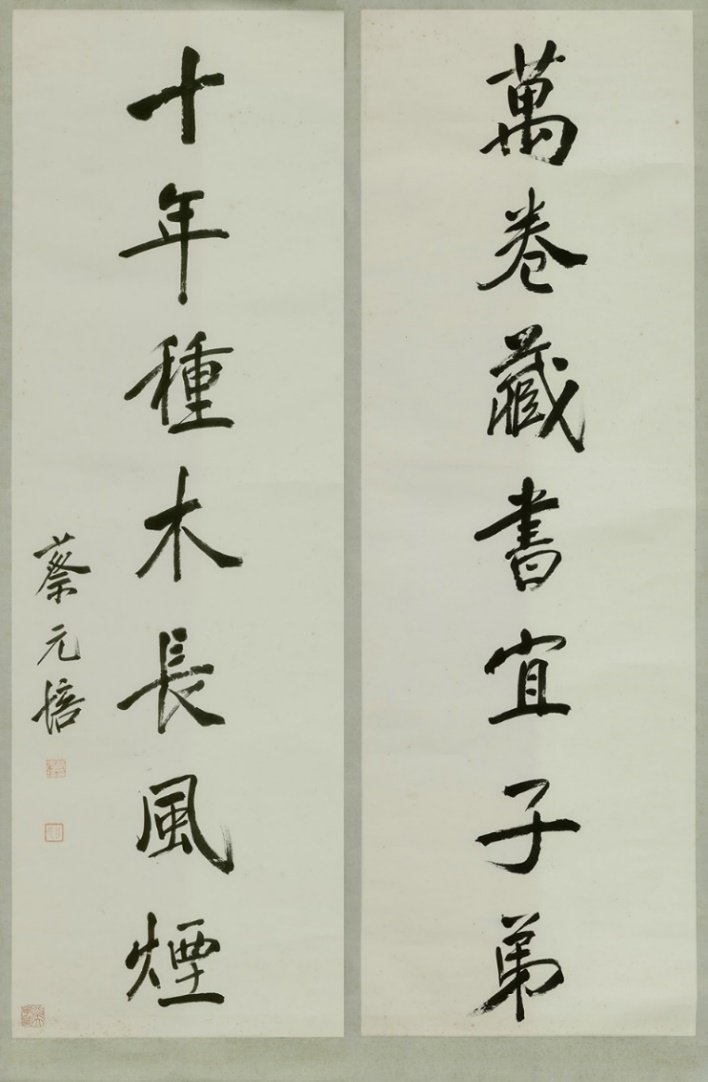 萬卷藏書宜子弟
十年種木長風煙
蔡元培